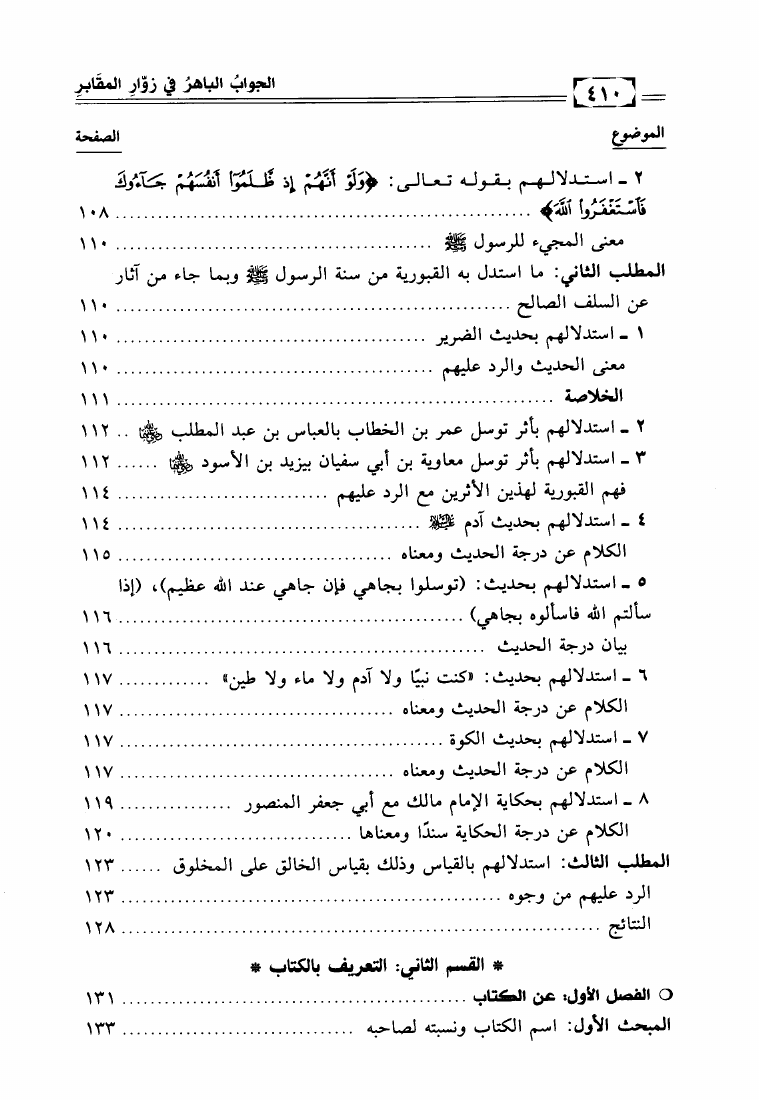 ٤١٠ الجوابُ الباهرُ في زوّارِ المقَابرِ
الموضوع الصفحة
٢ ـ استدلالهم بقوله تعالى: ﴿وَلَوْ أَنَّهُمْ إِذ ظَّلَمُوٓا۟ أَنفُسَهُمْ جَآءُوكَ
فَٱسْتَغْفَرُوا۟ ٱللَّهَ﴾ ........ ١٠٨
معنى المجيء للرسول ﷺ ........ ١١٠
المطلب الثاني: ما استدل به القبورية من سنة الرسول ﷺ وبما جاء من آثار
عن السلف الصالح ........ ١١٠
١ ـ استدلالهم بحديث الضرير ........ ١١٠
معنى الحديث والرد عليهم ........ ١١٠
الخلاصة ........ ١١١
٢ ـ استدلالهم بأثر توسل عمر بن الخطاب بالعباس بن عبد المطلب ﵄ .. ١١٢
٣ ـ استدلالهم بأثر توسل معاوية بن أبي سفيان بيزيد بن الأسود ﵄ ...... ١١٢
فهم القبورية لهذين الأثرين مع الرد عليهم ........ ١١٤
٤ ـ استدلالهم بحديث آدم ﵇ ........ ١١٤
الكلام عن درجة الحديث ومعناه ........ ١١٥
٥ ـ استدلالهم بحديث: (توسلوا بجاهي فإن جاهي عند الله عظيم)، (إذا
سألتم الله فاسألوه بجاهي) ........ ١١٦
بيان درجة الحديث ........ ١١٦
٦ ـ استدلالهم بحديث: «كنت نبيًا ولا آدم ولا ماء ولا طين» ........ ١١٧
الكلام عن درجة الحديث ومعناه ........ ١١٧
٧ ـ استدلالهم بحديث الكوة ........ ١١٧
الكلام عن درجة الحديث ومعناه ........ ١١٧
٨ ـ استدلالهم بحكاية الإمام مالك مع أبي جعفر المنصور ........ ١١٩
الكلام عن درجة الحكاية سندًا ومعناها ........ ١٢٠
المطلب الثالث: استدلالهم بالقياس وذلك بقياس الخالق على المخلوق ...... ١٢٣
الرد عليهم من وجوه ........ ١٢٣
النتائج ........ ١٢٨
* القسم الثاني: التعريف بالكتاب *
○ الفصل الأول: عن الكتاب ........ ١٣١
المبحث الأول: اسم الكتاب ونسبته لصاحبه ........ ١٣٣